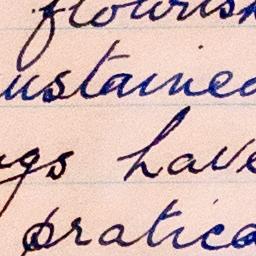 flourish
ustained
ngs have
pratica